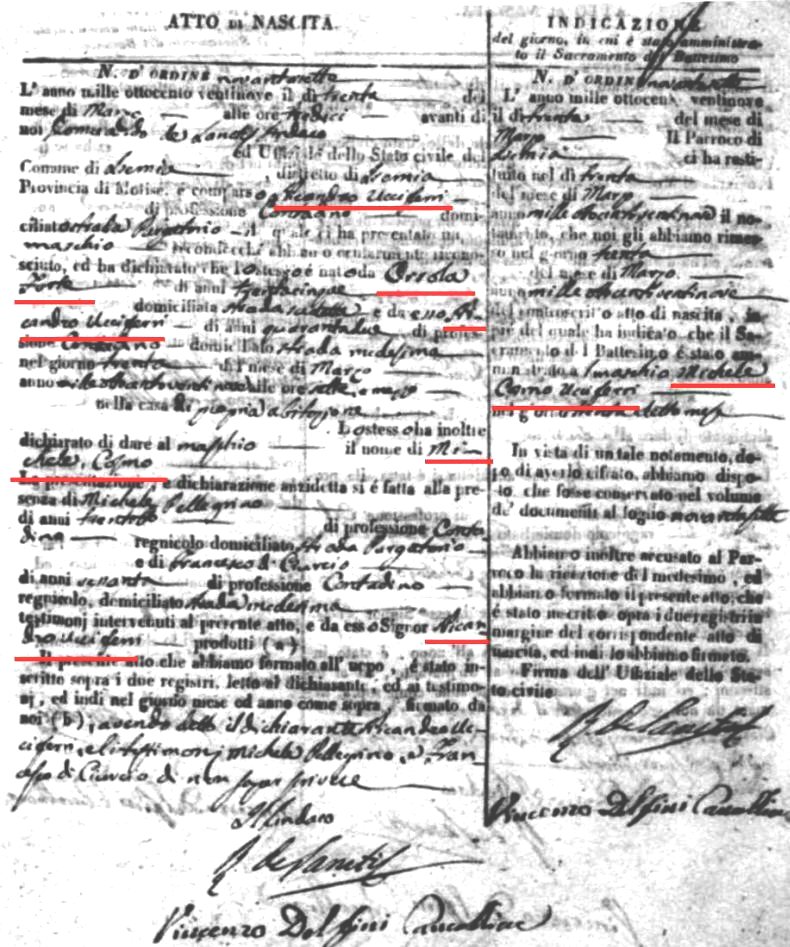 ATTO DI NASCITA
N. D' ORDINE novantasette
L' anno mille ottocento ventinove il dì trenta del
mese di Marzo alle ore tredici avanti di
noi
ed Uffiziale dello Stato civile del
Comune di Isernia distretto di Isernia
Provincia di Molise, è comparso Nicandro Ucciferri
di professione Contadino domi-
ciliato strada Purgatorio il quale ci ha presentato un
maschio secondochè abbiamo ocularmente ricono-
sciuto, ed ha dichiarato che lo stesso è nato da Orsola
Forte di anni trentacinque
domiciliata strada sudetta e da esso Ni-
candro Ucciferri di anni quarantadue di profes-
sione Contadino domiciliato strada medesima
nel giorno trenta del mese di Marzo
anno mille ottocentoventinove alle ore sette, e mezzo
nella casa di propria abitazione
Lo stesso ha inoltre
dichiarato di dare al maschio il nome di Mi-
chele, Cosmo
La presentazione, e dichiarazione anzidetta si è fatta alla pre-
senza di Michele Pellegrino
di anni di professione Conta-
dino regnicolo domiciliato strada Purgatorio
e di Francesco di Ciurcio
di anni sessanta di professione Contadino
regnicolo, domiciliato strada medesima
testimonj intervenuti al presente atto, e da esso Signor Nican-
dro Ucciferri prodotti (a)
Il presente atto che abbiamo formato all' uopo, è stato in-
scritto sopra i due registri, letto al dichiarante, ed ai testimo-
nj, ed indi nel giorno mese ed anno come sopra, firmato da
noi (b), avendo detto il dichiarante Nicandro Uc-
ciferri, e li testimonj Michele Pellegrino, e Fran-
cesco di Ciurcio di non saper scrivere
Il Sindaco
Vincenzo Delfini Cancelliere
INDICAZIONE
del giorno, in cui è stato amministra-
to il Sacramento del Battesimo
N. D' ORDINE novantasette
L' anno mille ottocento ventinove
il dì trenta del mese di
Marzo Il Parroco di
Isernia ci ha resti-
tuito nel dì trenta
del mese di Marzo
anno mille ottocentoventinove il no-
tamento, che noi gli abbiamo rimes-
so nel giorno trenta
del mese di Marzo
anno mille ottocentoventinove
del controscritto atto di nascita, in
piè del quale ha indicato che il Sa-
cramento del Battesimo è stato am-
ministrato a maschio Michele
Cosmo Ucciferri
nel giorno trenta detto mese
In vista di un tale notamento, do-
po di averlo cifrato, abbiamo dispos-
to, che fosse conservato nel volume
de' documenti al foglio novantasette
Abbiamo inoltre accusato al Par-
roco la ricezione del medesimo, ed
abbiamo formato il presente atto, che
è stato inscritto sopra i due registri in
margine del corrispondente atto di
nascita, ed indi lo abbiamo firmato.
Firma dell' Uffiziale dello Sta-
to civile
Vincenzo Delfini Cancelliere